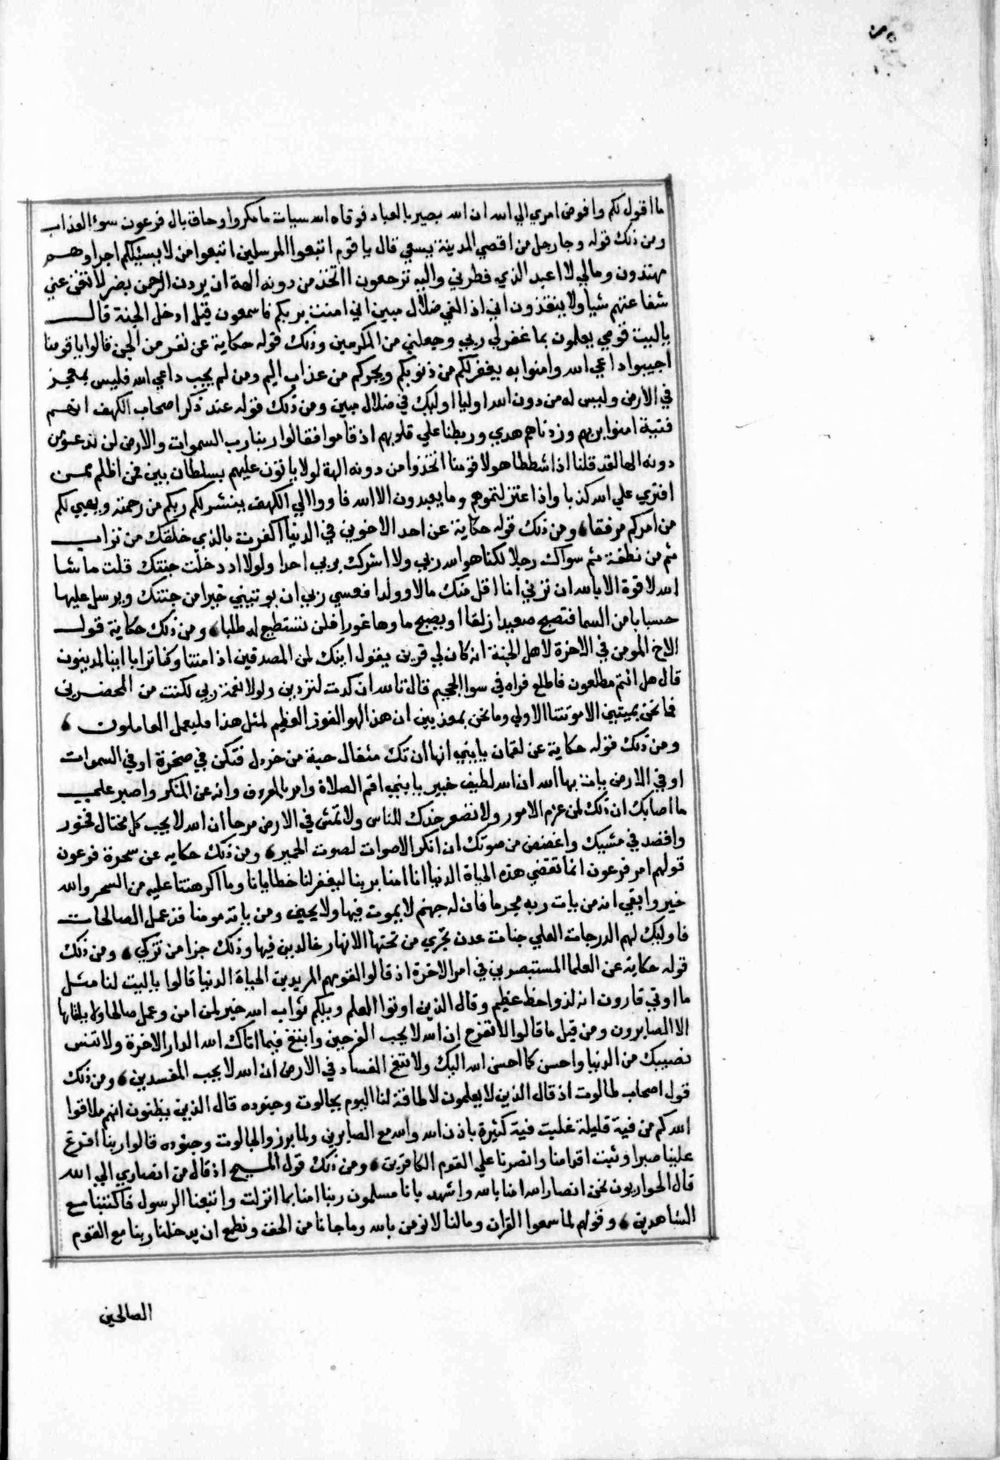 ما اقول لكم وافوض امري الي الله ان الله بصير بالعباد فوقاه الله سيات ما مكروا وحاق بال فرعون سوء العذاب
ومن ذلك قوله وجا رجل من اقصي المدينة يسعي قال يا قوم اتبعوا المرسلين اتبعوا من لا يسيلكم اجرا وهم
مهتدون ومالي لا اعبد الذي فطرني واليه ترجعون ااتخذ من دونه الهة ان يردن الرحمن بضر لا تغن عني
شفاعتهم شيا ولا ينقذون اني اذا لفي ضلال مبين اني امنت بربكم فاسمعون قيل ادخل الجنة قال
ياليت قومي يعلمون بما غفر لي ربي وجعلني من المكرمين وذلك قوله حكاية عن نفر من الجن قالوا يا قومنا
اجيبوا داعي الله وامنوا به يغفر لكم من ذنوبكم ويجركم من عذاب اليم ومن لم يجب داعي الله فليس بمعجز
في الارض وليس له من دون الله اوليا اوليك في ضلال مبين ومن ذلك قوله عند ذكر اصحاب الكهف انهم
فتية امنوا بربهم وزدناهم هدي وربطنا علي قلوبهم اذ قاموا فقالوا ربنا رب السموات والارض لن ندعو من
دونه الها لقد قلنا اذا شططا هولا قومنا اتخذوا من دونه الهة لولا ياتون عليهم بسلطان بين فمن اظلم ممن
افتري علي الله كذبا واذا اعتزلتموهم وما يعبدون الا الله فاووا الي الكهف ينشر لكم ربكم من رحمته ويهيي لكم
من امركم مرفقا، ومن ذلك قوله حكاية عن احد الاخوين في الدنيا اكفرت بالذي خلقك من تراب
ثم من نطفة ثم سواك رجلا لكنا هو الله ربي ولا اشرك بربي احدا ولولا اذ دخلت جنتك قلت ما شا
الله لا قوة الا بالله ان ترني انا اقل منك مالا وولدا فعسي ربي ان يوتيني خيرا من جنتك ويرسل عليها
حسبانا من السما فتصبح صعيدا زلقا او يصبح ماوها غورا فلن تستطيع له طلبا، ومن ذلك حكاية قول
الاخ المومن في الاخرة لاهل الجنة انه كان لي قرين يقول اينك لمن المصدقين اذا متنا وكنا ترابا اينا لمدينون
قال هل انتم مطلعون فاطلع فراه في سوا الجحيم قال تالله ان كدت لتردين ولولا نعمة ربي لكنت من المحضرين
فما نحن بميتين الا موتتنا الاولي وما نحن بمعذبين ان هذا لهو الفوز العظيم لمثل هذا فليعمل العاملون،
ومن ذلك قوله حكاية عن لقمان يا بني انها ان تك مثقال حبة من خردل فتكن في صخرة او في السموات
او في الارض يات بها الله ان الله لطيف خبير يا بني اقم الصلاة وامر بالمعروف وانه عن المنكر واصبر علي
ما اصابك ان ذلك لمن عزم الامور ولا تصعر خدك للناس ولا تمش في الارض مرحا ان الله لا يحب كل مختال فخور
واقصد في مشيك واغضض من صوتك ان انكر الاصوات لصوت الحمير، ومن ذلك حكايه عن سحرة فرعون
قولهم امر فرعون انما تقضي هذه الحياة الدنيا انا امنا بربنا ليغفر لنا خطايانا وما اكرهتنا عليه من السحر والله
خير وابقي انه من يات ربه مجرما فان له جهنم لا يموت فيها ولا يحيي ومن ياته مومنا قد عمل الصالحات
فاوليك لهم الدرجات العلي جنات عدن تجري من تحتها الانهار خالدين فيها وذلك جزا من تزكي، ومن ذلك
قوله حكاية عن العلما المستبصرين في امر الاخرة اذ قالوا لقومهم المريدين الحياة الدنيا قالوا ياليت لنا مثل
ما اوتي قارون انه لذو احظ عظيم وقال الذين اوتوا العلم ويلكم ثواب الله خير لمن امن وعمل صالحا ولا يلقاها
الا الصابرون ومن قبل ما قالوا لا تفرح ان الله لا يحب الفرحين وابتغ فيما اتاك الله الدار الاخرة ولا تنس
نصيبك من الدنيا واحسن كما احسن الله اليك ولا تبغ الفساد في الارض ان الله لا يحب المفسدين، ومن ذلك
قول اصحاب طالوت اذ قال الذين لا يعلمون لا طاقة لنا اليوم بجالوت وجنوده قال الذين يظنون انهم ملاقوا
الله كم من فية قليلة غلبت فية كثيرة باذن الله والله مع الصابرين ولما برزوا لجالوت وجنوده قالوا ربنا افرغ
علينا صبرا وثبت اقدامنا وانصرنا علي القوم الكافرين، ومن ذلك قول المسيح اذ قال من انصاري الي الله
قال الحواريون نحن انصار الله امنا بالله واشهد بانا مسلمون ربنا امنا بما انزلت واتبعنا الرسول فاكتبنا مع
الشاهدين، وقولهم لما سمعوا القران وما لنا لا نومن بالله وما جانا من الحق ونطمع ان يدخلنا ربنا مع القوم
الصالحين